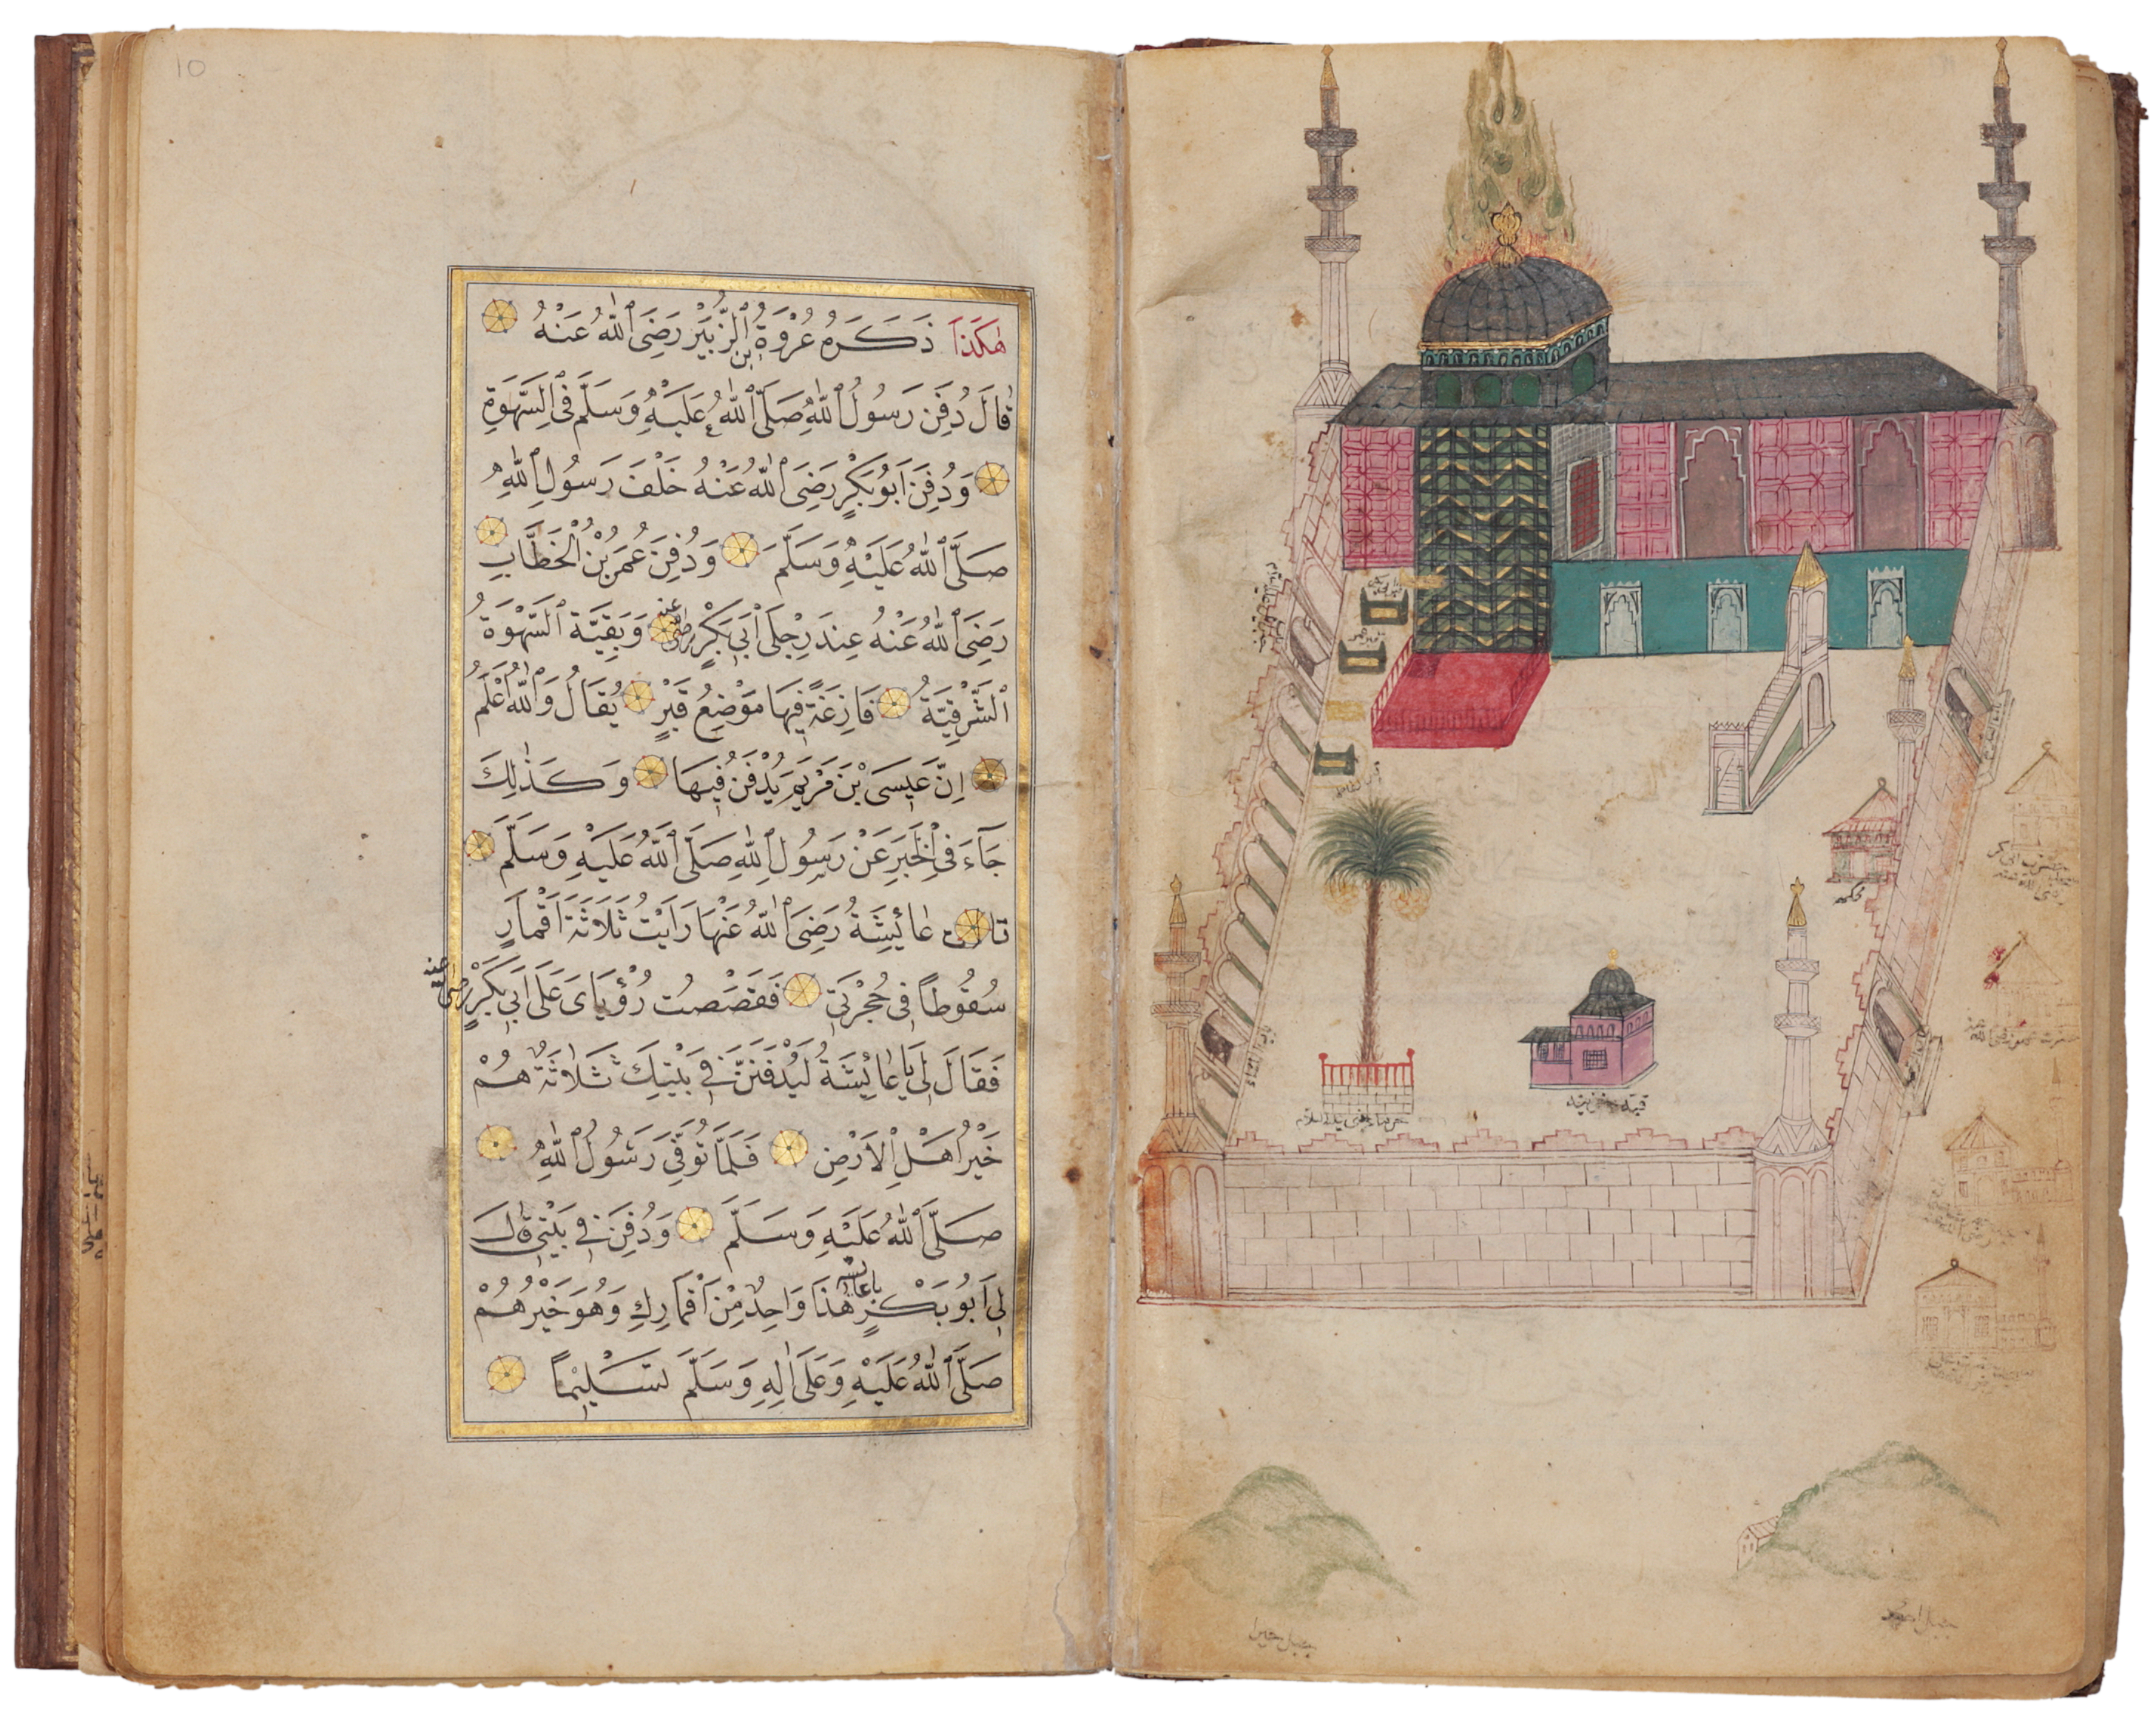 هٰكَذَا ذَكَرَهُ عُرْوَةُ بْنُ الزُّبَيْرِ رَضِيَ اللّٰهُ عَنْهُ
قَالَ دُفِنَ رَسُولُ اللّٰهِ صَلَّى اللّٰهُ عَلَيْهِ وَسَلَّمَ فِي السَّهْوَةِ
وَدُفِنَ اَبُو بَكْرٍ رَضِيَ اللّٰهُ عَنْهُ خَلْفَ رَسُولِ اللّٰهِ
صَلَّى اللّٰهُ عَلَيْهِ وَسَلَّمَ وَدُفِنَ عُمَرُ بْنُ الْخَطَّابِ
رَضِيَ اللّٰهُ عَنْهُ عِنْدَ رِجْلَيْ اَبِي بَكْرٍ رضي عنه وَبَقِيَّة السَّهْوَةُ
الشَّرْقِيَّةُ فَارِغَةً فِيهَا مَوْضِعُ قَبْرٍ يُقَالُ وَاللّٰهُ اَعْلَمُ
اِنَّ عِيسَى بْنَ مَرْيَمَ يُدْفَنُ فِيهَا وَكَذٰلِكَ
جَآءَ فِي الْخَبَرِ عَنْ رَسُولِ اللّٰهِ صَلَّى اللّٰهُ عَلَيْهِ وَسَلَّمَ
قالت عَائِشَةُ رَضِيَ اللّٰهُ عَنْهَا رَاَيْتُ ثَلَاثَةَ اَقْمَارٍ
سُقُوطًا فِي حُجْرَتِي فَقَصَصْتُ رُؤْيَايَ عَلَى اَبِي بَكْرٍ رضي عنه
فَقَالَ لِي يَا عَائِشَةُ لَيُدْفَنَنَّ فِي بَيْتِكِ ثَلَاثَةٌ هُمْ
خَيْرُ اَهْلِ الْاَرْضِ فَلَمَّا تُوُفِّيَ رَسُولُ اللّٰهِ
صَلَّى اللّٰهُ عَلَيْهِ وَسَلَّمَ وَدُفِنَ فِي بَيْتِي قَالَ
لِي اَبُو بَكْرٍ يا عائشة هٰذَا وَاحِدٌ مِنْ اَقْمَارِكِ وَهُوَ خَيْرُهُمْ
صَلَّى اللّٰهُ عَلَيْهِ وَعَلَى اٰلِهِ وَسَلَّمَ تَسْلِيمًا
10
محكمه
قبه خزينه